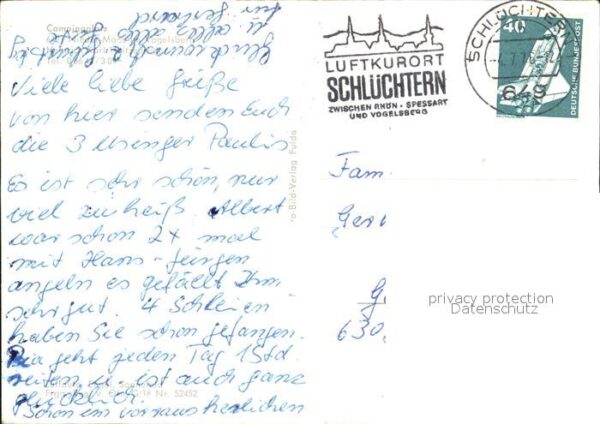 Campingplatz
Viele liebe Grüße
von hier senden Euch
die 3 Usinger Paulis
Es ist sehr schön, nur
viel zu heiß. Albert
war schon 2x mal
mit Hans-Jürgen
angeln es gefällt Ihm
sehr gut. 4 Schleien
haben Sie schon gefangen.
Pia geht jeden Tag 1 Std.
reiten u. ist auch ganz
glücklich.
Schon im vorraus herzlichen
u. alles alles
Nr. 52452
-Bild-Verlag Fulda
LUFTKURORT
SCHLÜCHTERN
ZWISCHEN RHÖN · SPESSART
UND VOGELSBERG
SCHLÜCHTERN
649
40
DEUTSCHE BUNDESPOST
Fam.
G.
630.
privacy protection
Datenschutz